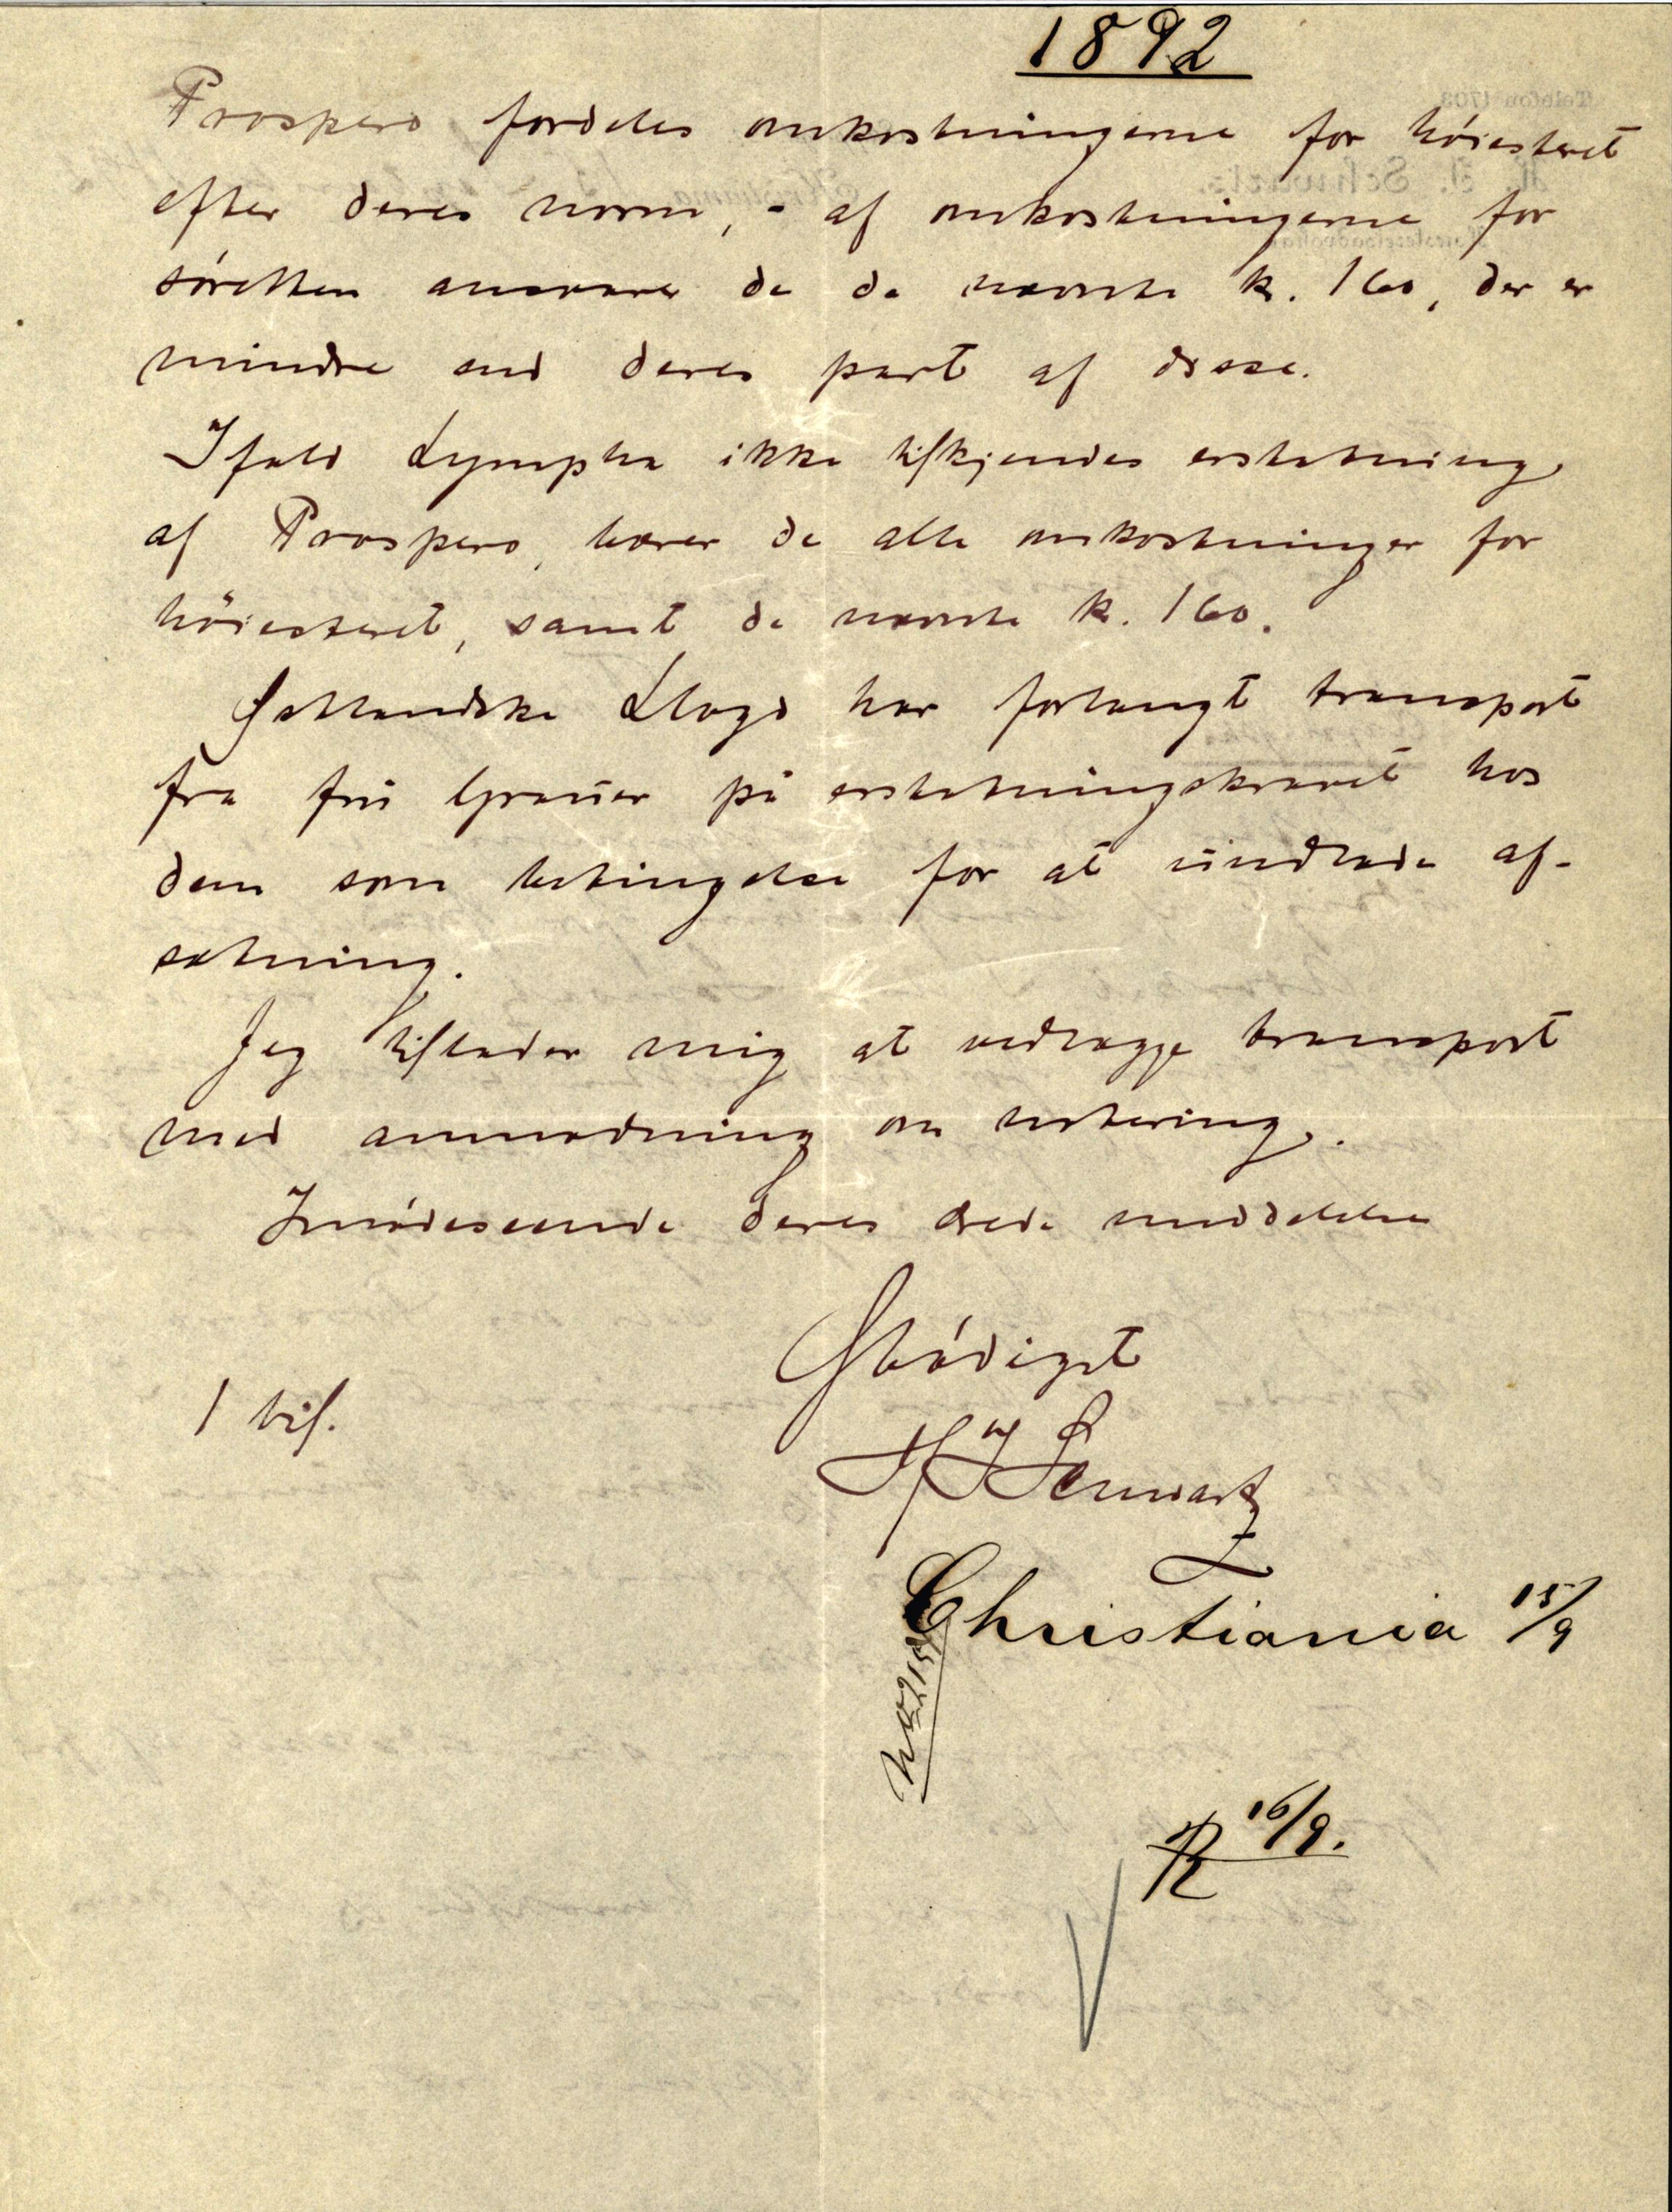 1892
Prospero fordeles omkostningerne for høiesteret
efter deres norm, - af omkostningerne for
søretten ansvarer de de nævnte k. 160, der er
mindre end deres part af disse.
Ifald Lympha ikke tilkjendes erstatning
af Prospero, bærer de alle omkostninger for
höiesteret, samt de nævnte k. 160.
Hollandske Lloyd har forlangt transport
fra frü Graüer på erstatningskravet hos
dem som betingelse for at üindlade af-
sætning.
Jeg tillader mig at vedlægge transport
med anmodning om notering.
Imødeseende deres ærede meddelelse
Ærbødigst
1 bil.
H J Schwartz
Christiania 15/9
R 16/9.